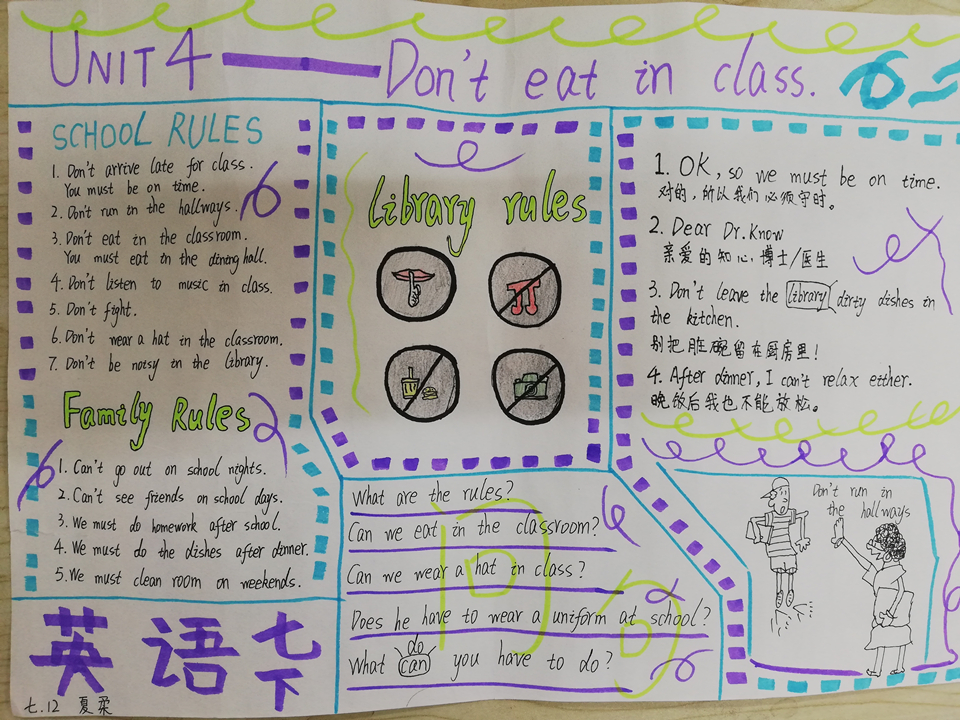 UNIT 4 — Don't eat in class.
SCHOOL RULES
1. Don't arrive late for class.
You must be on time.
2. Don't run in the hallways.
3. Don't eat in the classroom.
You must eat in the dining hall.
4. Don't listen to music in class.
5. Don't fight.
6. Don't wear a hat in the classroom.
7. Don't be noisy in the library.
Family Rules
1. Can't go out on school nights.
2. Can't see friends on school days.
3. We must do homework after school.
4. We must do the dishes after dinner.
5. We must clean room on weekends.
英语七下
七.12 夏柔
Library rules
What are the rules?
Can we eat in the classroom?
Can we wear a hat in class?
Does he have to wear a uniform at school?
do
What can you have to do?
1. OK, so we must be on time.
对的，所以我们必须守时。
2. Dear Dr. Know
亲爱的知心博士/医生
3. Don't leave the library dirty dishes in
the kitchen.
别把脏碗留在厨房里！
4. After dinner, I can't relax either.
晚饭后我也不能放松。
Don't run in
the hallways